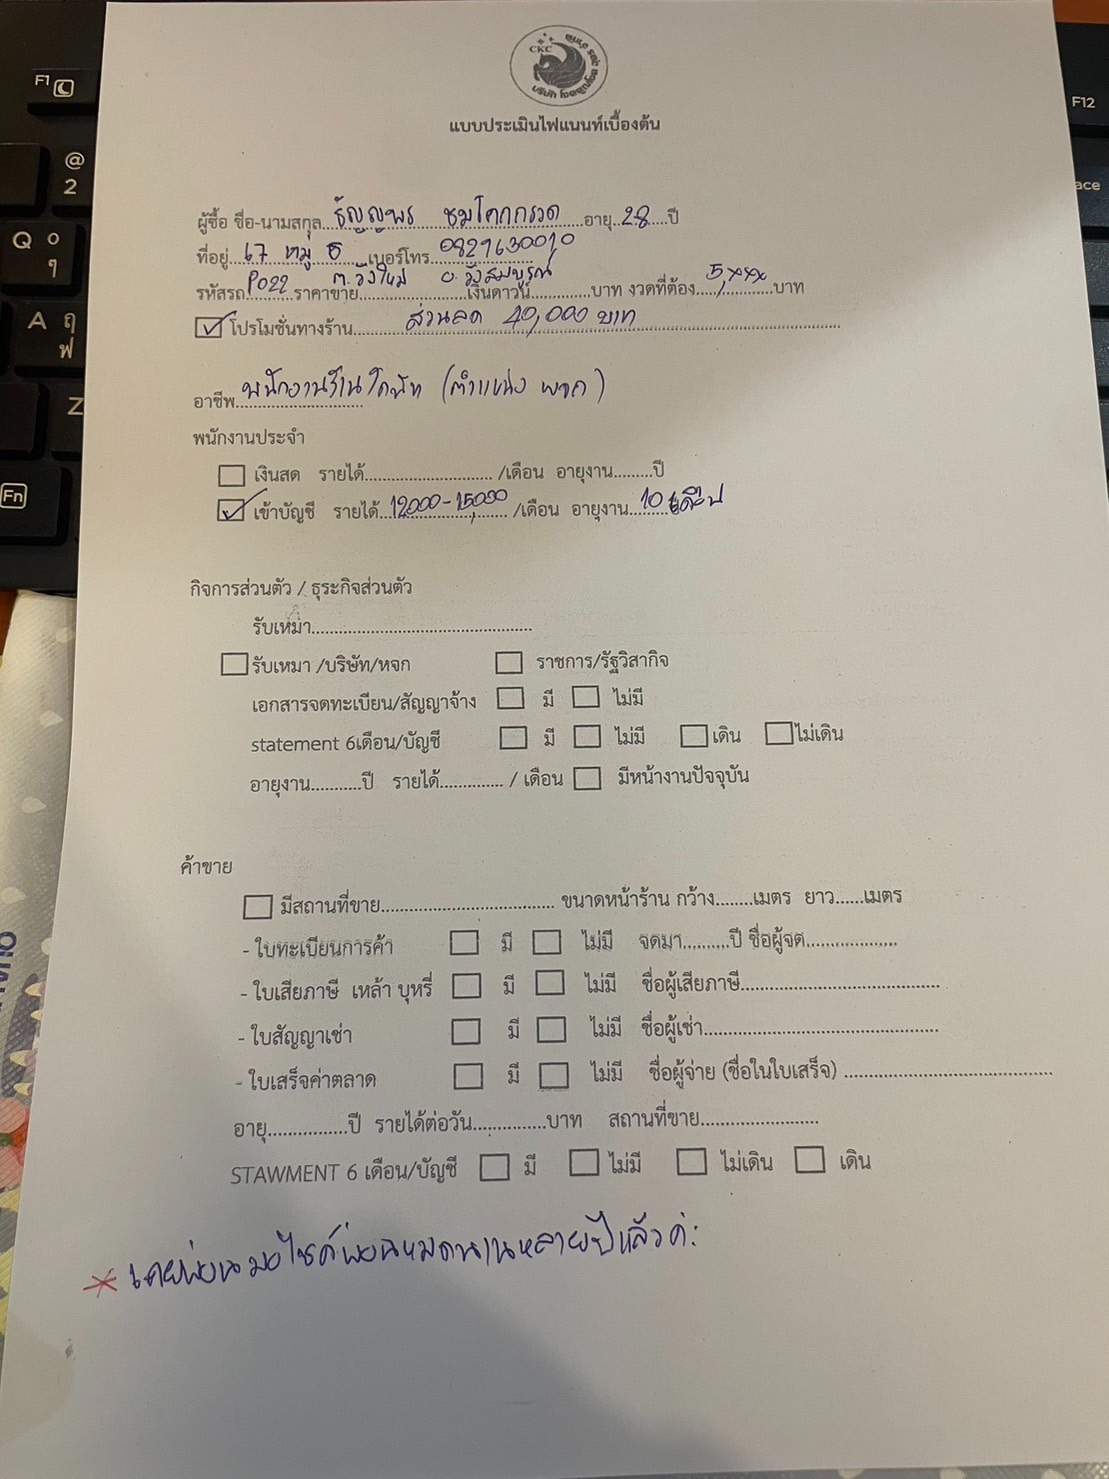 CKC
แบบประเมินไฟแนนท์เบื้องต้น
ผู้ซื้อ ชื่อ-นามสกุล ธัญญพร ชมโคกกรวด อายุ 28 ปี
ที่อยู่ 67 หมู่ 5 เบอร์โทร 0829630010
ต.วังใหม่ อ.วังสมบูรณ์
รหัสรถ P022 ราคาขาย เงินดาวน์ บาท งวดที่ต้อง 5,xxx บาท
โปรโมชั่นทางร้าน ส่วนลด 40,000 บาท
อาชีพ พนักงานร้าน (ตำแหน่ง )
พนักงานประจำ
เงินสด รายได้ /เดือน อายุงาน ปี
เข้าบัญชี รายได้ 12000-15,000 /เดือน อายุงาน 10 เดือน
กิจการส่วนตัว / ธุระกิจส่วนตัว
รับเหมา
รับเหมา /บริษัท/หจก ราชการ/รัฐวิสากิจ
เอกสารจดทะเบียน/สัญญาจ้าง มี ไม่มี
statement 6เดือน/บัญชี มี ไม่มี เดิน ไม่เดิน
อายุงาน ปี รายได้ / เดือน มีหน้างานปัจจุบัน
ค้าขาย
มีสถานที่ขาย ขนาดหน้าร้าน กว้าง เมตร ยาว เมตร
- ใบทะเบียนการค้า มี ไม่มี จดมา ปี ชื่อผู้จด
- ใบเสียภาษี เหล้า บุหรี่ มี ไม่มี ชื่อผู้เสียภาษี
- ใบสัญญาเช่า มี ไม่มี ชื่อผู้เช่า
- ใบเสร็จค่าตลาด มี ไม่มี ชื่อผู้จ่าย (ชื่อในใบเสร็จ)
อายุ ปี รายได้ต่อวัน บาท สถานที่ขาย
STAWMENT 6 เดือน/บัญชี มี ไม่มี ไม่เดิน เดิน
* เคยผ่อนมอไซค์ผ่อนหมดนานหลายปีแล้วค่ะ
F1
@
2
Q
ๆ
A ฤ
ฟ
Z
Fn
F12